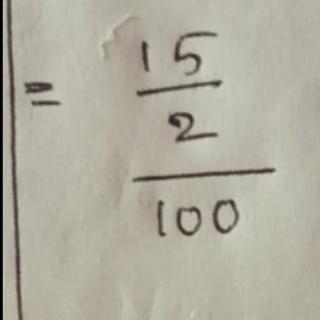 15
= 2
100